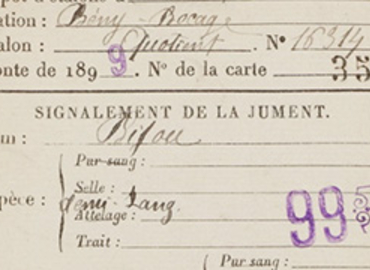 ation : Bény-Bocage
alon : Quotient . N° 16314
onte de 1899. N° de la carte 35
SIGNALEMENT DE LA JUMENT.
m : Bijou
Pur sang :
Selle :
pèce : demi-sang.
Attelage :
995
Trait :
Pur sang :